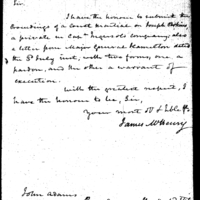 Sir
I have the honour to submit the
proceedings of a court martial on Joseph
a private in Capt Ingersolls company, also
a letter from Major General Hamilton dated
the 8th July inst, with two forms, one a
pardon, and the other a warrant of
execution.
With the greatest respect, I
have the honour to be, Sir,
Your most Ob
James McHenry
John Adams